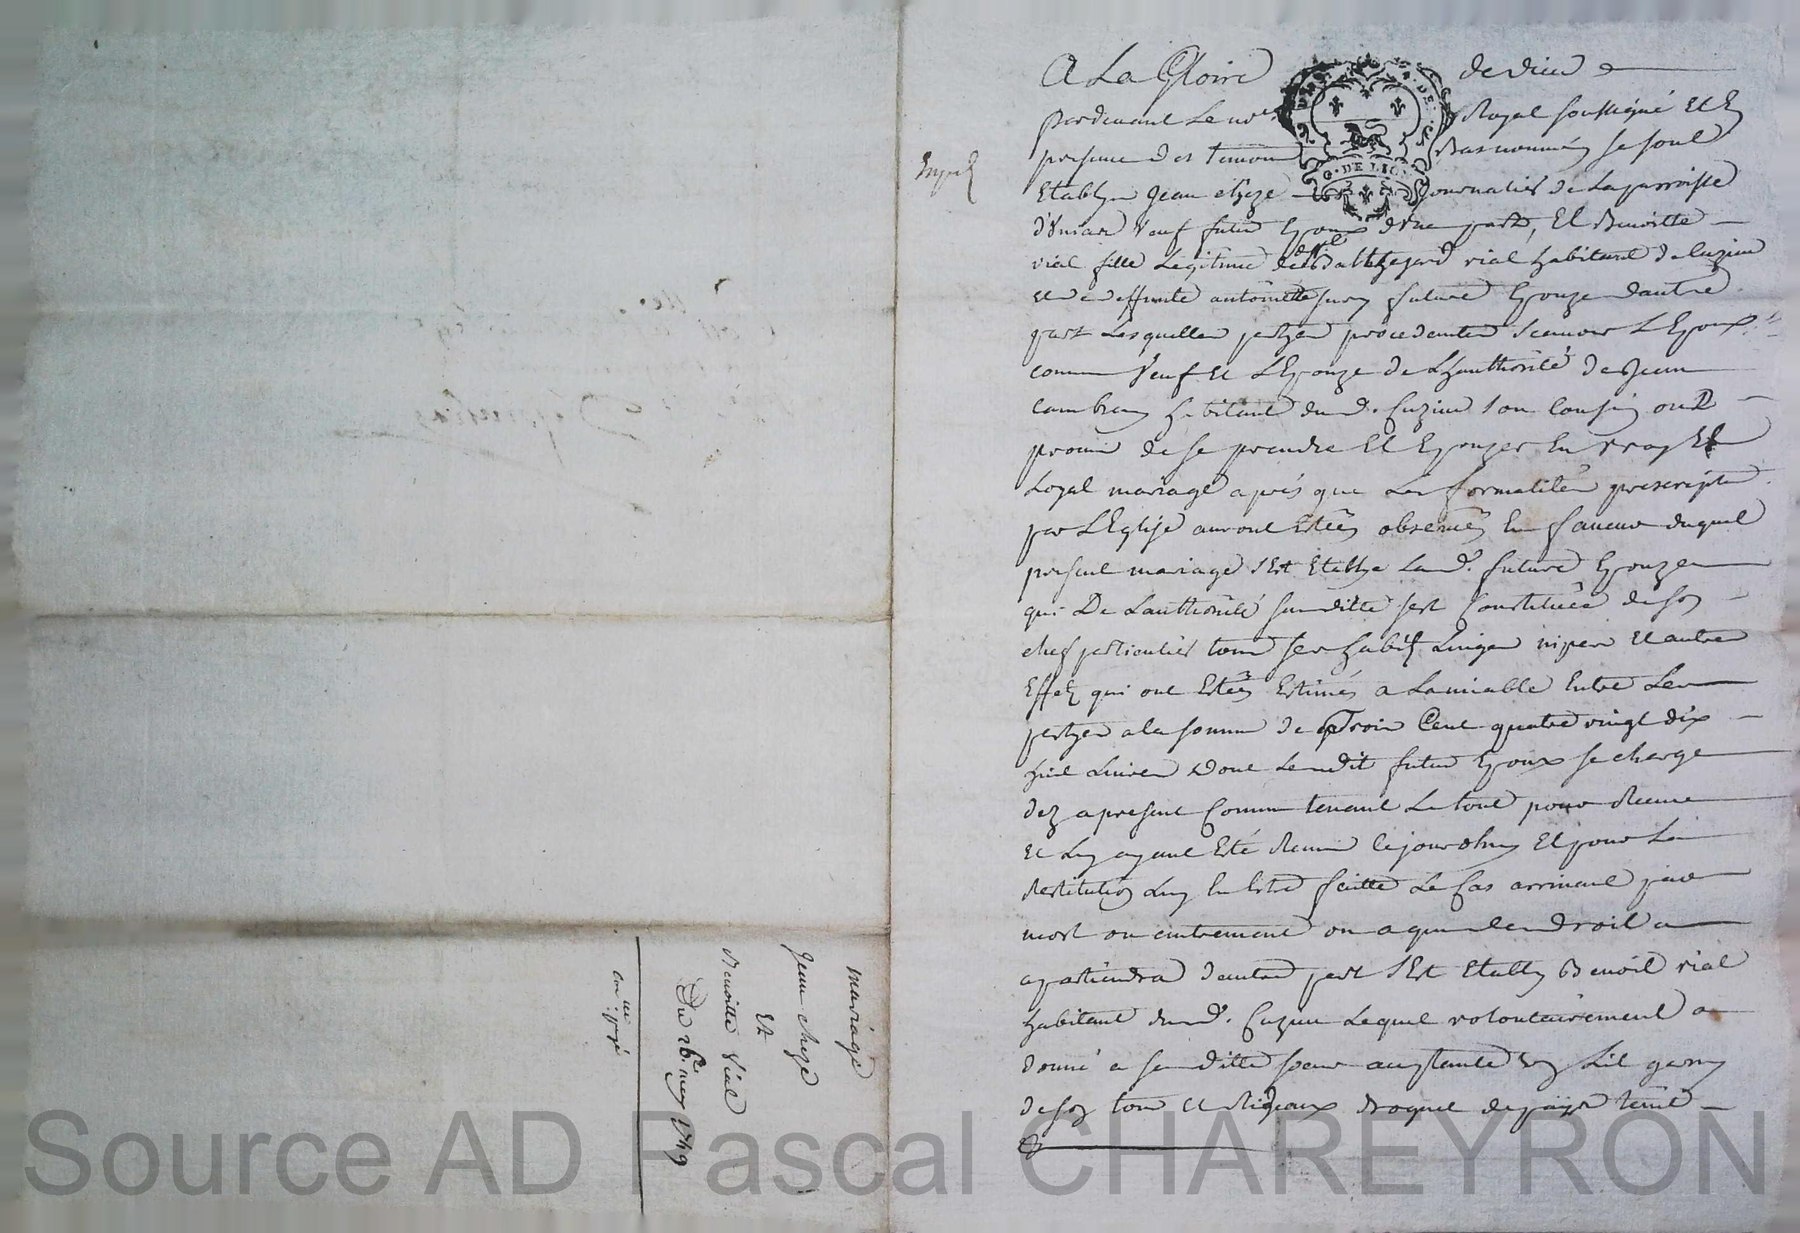 A La Gloire de dieu
pardevant Le nore Royal soussigné Et En
presence des temoins Bas nommés se sont
Etablys Jean cheze journalier de La parroisse
d'Unias veuf futur Epoux d'une part, Et Benoitte
vial fille Legitime de Balthezard vial habitant de Cuzieu
et de deffunte antoinette jury future Epouze d'autre
part Lesquelles partyes procedantes scavoir L'Epoux
comme veuf et L'Epouze de L'hauthorité de Jean
habitant dud. Cuzieu son Cousin ont
promis de se prendre Et Epouzer En vray Et
Loyal mariage après que Les formalités prescriptes
par L'Eglise auront Etées observées En faveur duquel
present mariage s'Est Etablye Lad. future Epouze
qui De Lauthorité susditte s'est Constituée de son
chef particulier tous ses habits Linges nipes et autres
Effets qui ont Etées Estimés a Lamiable Entre Les
partyes a la somme de Trois Cent quatre vingt dix
huit Livres Dont Ledit futur Epoux se charge
dez apresent Comme tenant Le tout pour Receue
Et Luy ayant Eté Remis Cejourdhuy Et pour La
Restitution Luy En Estre faitte Le Cas arrivant par
mort ou autrement ou a qui de droit
apartiendra d'autre part s'Est Etably Benoit vial
habitant dud. Cuzieu Lequel volontairement a
donné a saditte soeur acceptante un Lit garny
de son tour et Rideaux
DE LION
mariage
Jean cheze
Et
Benoitte Vial
Du 26e may 1749
Source AD Pascal CHAREYRON